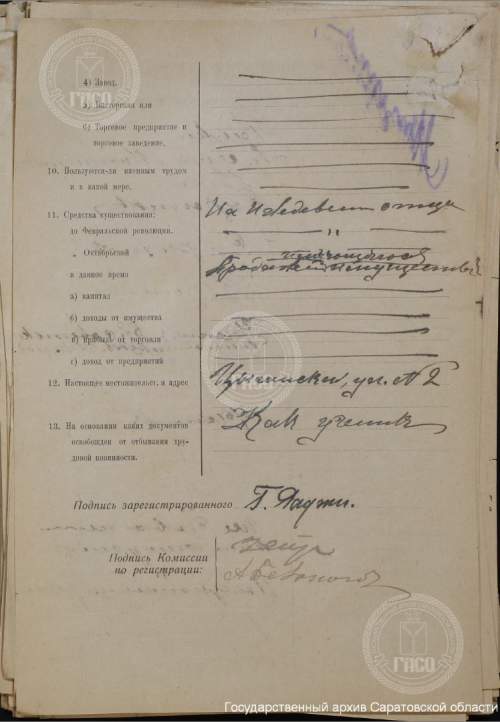 4) Завод.
5) Мастерская или
6) Торговое предприятие и
торговое заведение.
10. Пользуется-ли наемным трудом
и в какой мере.
11. Средства существования:
На иждевении отца
до Февральской революции.
„ Октябрьской „
в данное время
имущества
а) капитал
б) доходы от имущества
в) прибыль от торговли
г) доход от предприятий
12. Настоящее местожительст. и адрес
ул. № 2
13. На основании каких документов
Как ученик
освобожден от отбывания тру-
довой повинности.
Подпись зарегистрированного
Подпись Комиссии
по регистрации:
ГАСО
ГАСО
ГАСО
Государственный архив Саратовской области